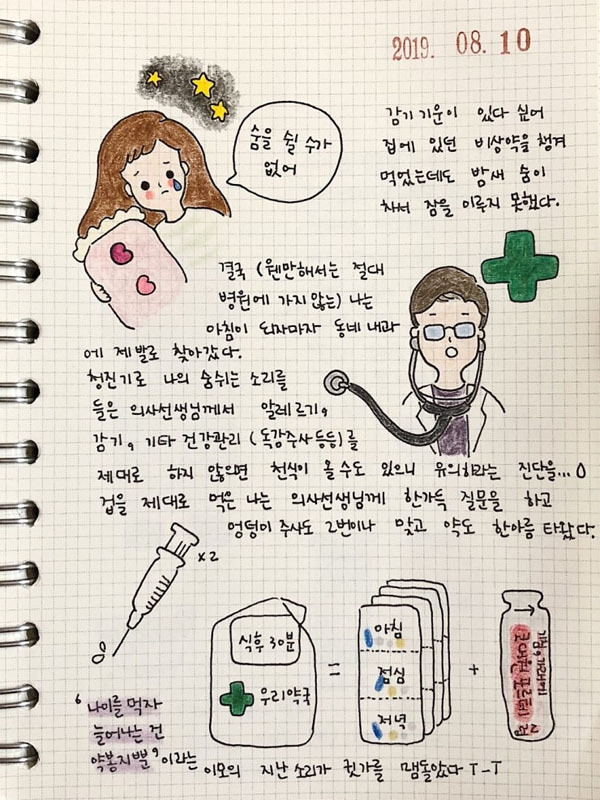 2019. 08. 10
감기 기운이 있다 싶어
집에 있던 비상약을 챙겨
먹었는데도 밤새 숨이
차서 잠을 이루지 못했다.
숨을 쉴 수가
없어
결국 (웬만해서는 절대
병원에 가지 않는) 나는
아침이 되자마자 동네 내과
에 제발로 찾아갔다.
청진기로 나의 숨쉬는 소리를
들은 의사선생님께서 알레르기,
감기, 기타 건강관리 (독감주사 등등)를
제대로 하지 않으면 천식이 올 수도 있으니 유의하라는 진단을...
겁을 제대로 먹은 나는 의사선생님께 한가득 질문을 하고
엉덩이 주사도 2번이나 맞고 약도 한아름 타왔다.
x2
식후 30분
우리약국
=
아침
점심
저녁
+
기침, 가래에
코대원 포르테 시럽
'나이를 먹자
늘어나는 건
약봉지뿐'이라는 이모의 지난 소리가 귓가를 맴돌았다 T-T